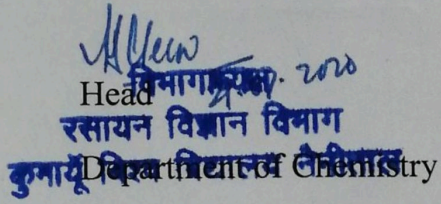 2020
Head विभागाध्यक्ष
रसायन विज्ञान विभाग
कुमायूँ विश्व विद्यालय नैनीताल
Department of Chemistry